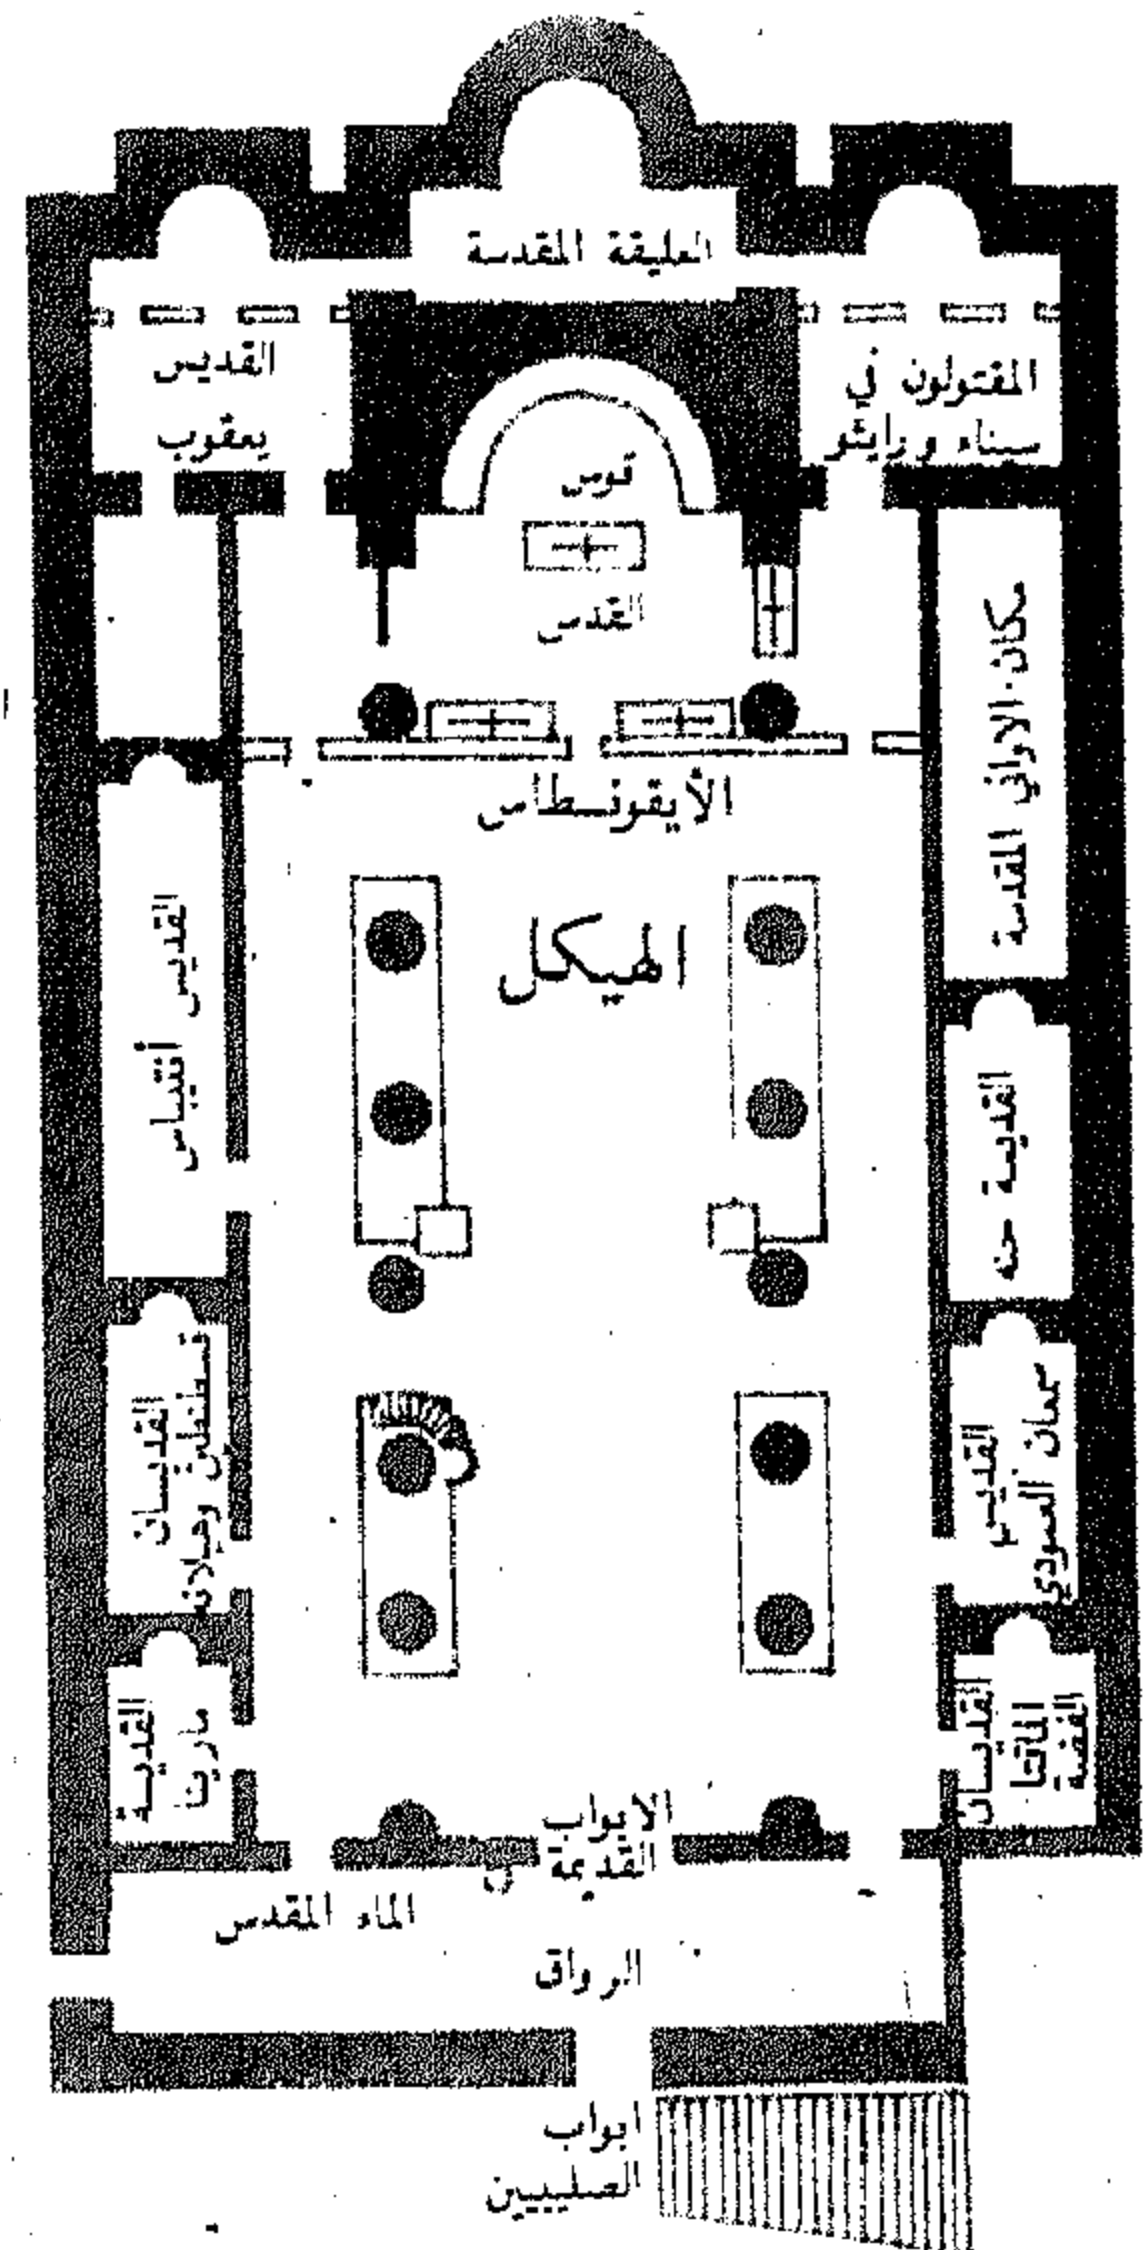 العليقة المقدسة
القديس
يعقوب
المقتولون في
سيناء ورايثو
قوس
القدس
الأيقونسطاس
مكان الاواني المقدسة
الهيكل
القديس أنتيباس
القديسة حنه
القديسان
قسطنطين وهيلانه
القديس
سمعان العمودي
القديسة
مارينا
القديسان
الماقتا
الفضة
الابواب
القديمة
الماء المقدس
الرواق
ابواب
الصليبيين